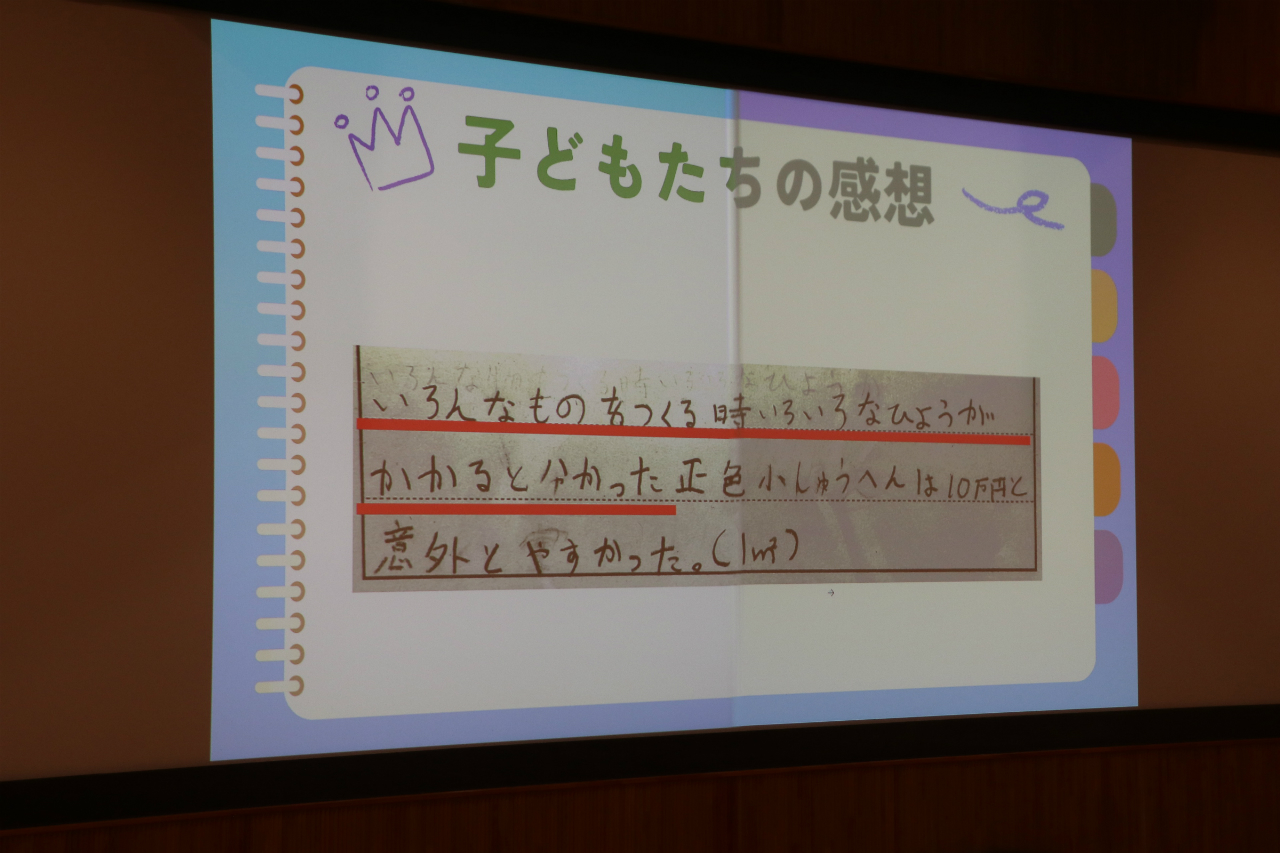 子どもたちの感想
いろんなものをつくる時いろいろなひようが
かかると分かった正色小しゅうへんは10万円と
意外とやすかった。(1㎡)